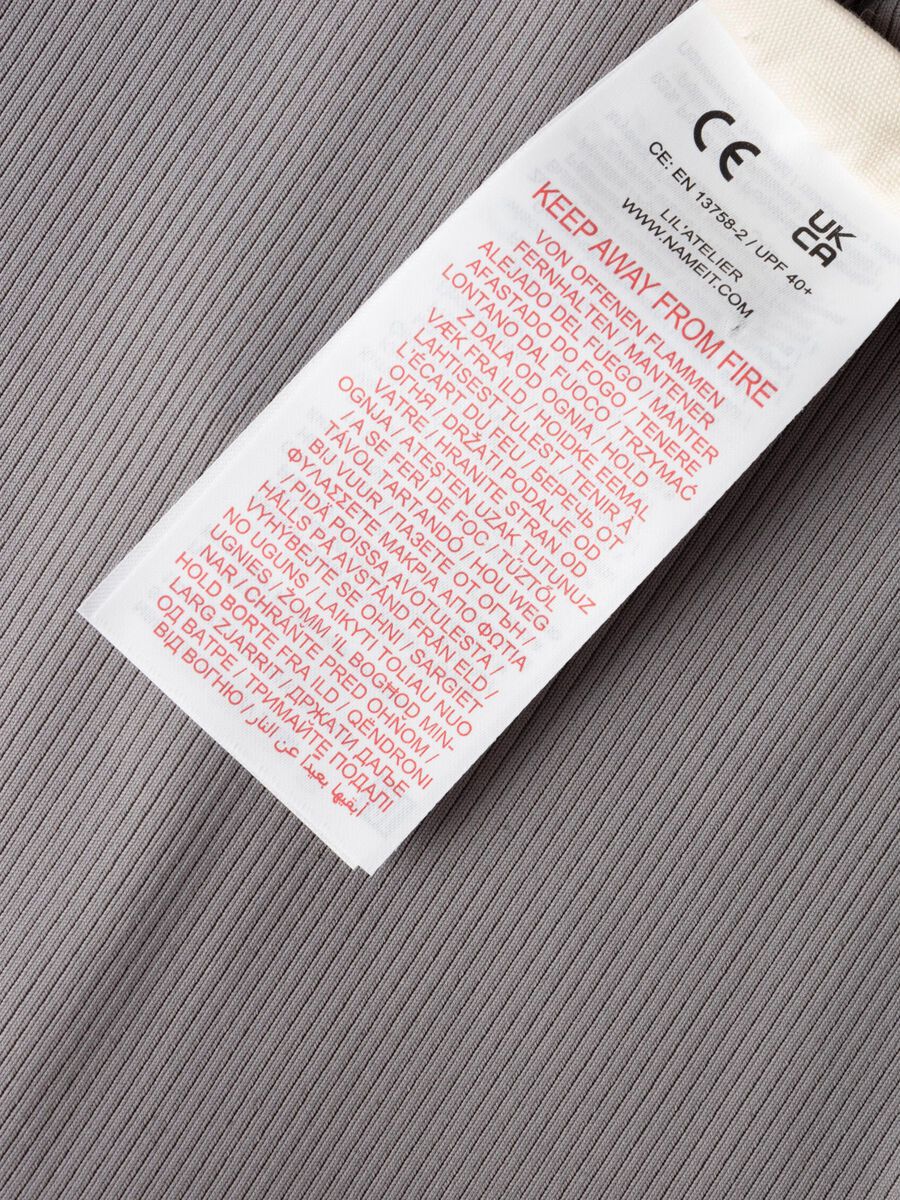 CE
CE: EN 13758-2 / UPF 40+
UK
CA
LIL'ATELIER
WWW.NAMEIT.COM
KEEP AWAY FROM FIRE
VON OFFENEN FLAMMEN
FERNHALTEN / MANTENER
ALEJADO DEL FUEGO / MANTER
AFASTADO DO FOGO / TENERE
LONTANO DAL FUOCO / TRZYMAĆ
Z DALA OD OGNIA / HOLD
VÆK FRA ILD / HOIDKE EEMAL
LAHTISEST TULEST / TENIR À
L'ÉCART DU FEU / БЕРЕЧЬ ОТ
ОГНЯ / DRŽATI PODALJE OD
VATRE / HRANITE STRAN OD
OGNJA / ATEŞTEN UZAK TUTUNUZ
/ A SE FERI DE FOC / TŰZTŐL
TÁVOL TARTANDÓ / HOU WEG
BIJ VUUR / ПАЗЕТЕ ОТ ОГЪН /
ΦΥΛΑΣΣΕΤΕ ΜΑΚΡΙΑ ΑΠΟ ΦΩΤΙΑ
/ PIDÄ POISSA AVOTULESTA /
HÅLLS PÅ AVSTÅND FRÅN ELD /
VYHÝBEJTE SE OHNI / SARGIET
NO UGUNS / LAIKYTI TOLIAU NUO
UGNIES / ŻOMM 'IL BOGĦOD MIN-
NAR / CHRÁŇTE PRED OHŇOM /
HOLD BORTE FRA ILD / QËNDRONI
LARG ZJARRIT / ДРЖАТИ ДАЉЕ
ОД ВАТРЕ / ТРИМАЙТЕ ПОДАЛІ
ВІД ВОГНЮ / أبقيها بعيداً عن النار